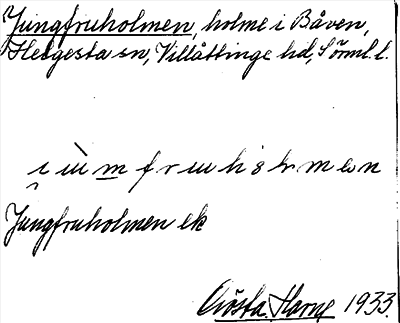 Jungfruholmen, holme i Båven,
Helgesta sn, Villåttinge hd, Sörml. l.
Jungfruholmen ek
Gösta Harne 1933.